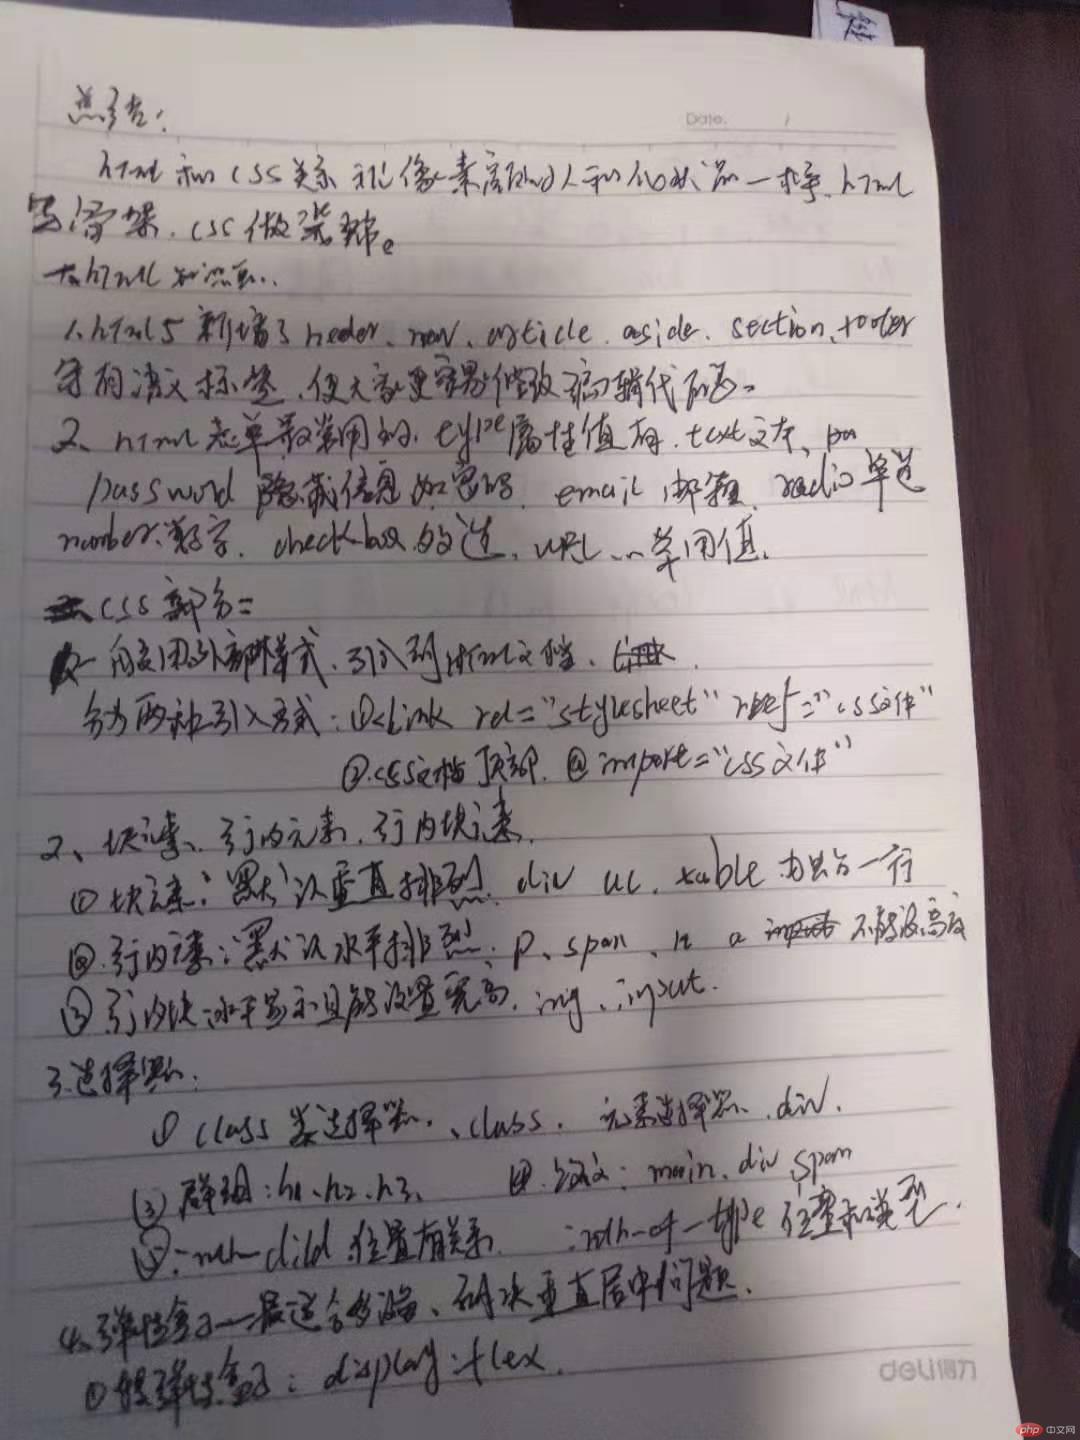 总结:
Date. /
html和CSS关系就像素颜的人和化妆品一样, html
写骨架, css做装饰。
一、html知识点..
1、html5新增了header、nav、article、aside、section、footer
等有语义标签,使大家更容易修改编辑代码。
2、html表单最常用的、type属性值有、text文本、pa
password 隐藏信息如密码、email 邮箱、radio单选
number、数字、checkbox 多选、URL 常用值。
CSS部分:
使用外部样式,引入到html文档、
分为两种引入方式:①<link rel="stylesheet" href="css文件"
②.css文档顶部、@import="css文件"
2、块元素、行内元素、行内块元素
①块元素:默认垂直排列、div ul、table 占一行
②.行内元素:默认水平排列、p、span、h a 不能设高度
③行内块:水平显示且能设置宽高、img、input.
3.选择器:
① class 类选择器、.class、 元素选择器、div.
③群组:h1、h2、h3、 ④. : main、div span
⑤:nth-child 位置有关系 :nth-of-type 位置和类型.
4、弹性盒子——最适合 、解决垂直居中问题.
① 弹性盒子:display:flex.
deli得力
php 中文网